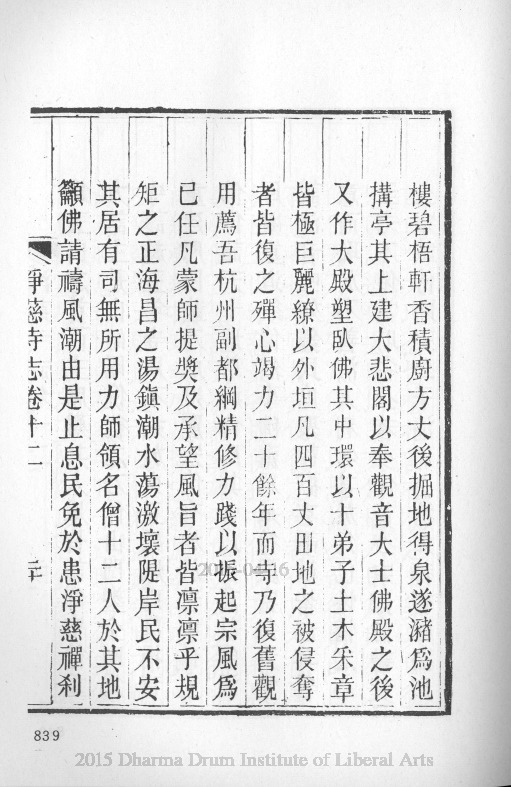 樓碧梧軒香積廚方丈後掘地得泉遂瀦爲池
搆亭其上建大悲閣以奉觀音大士佛殿之後
又作大殿塑臥佛其中環以十弟子土木釆章
皆極巨麗繚以外垣凡四百丈田地之被侵奪
者皆復之殫心竭力二十餘年而寺乃復舊觀
用薦吾杭州副都綱精修力踐以振起宗風爲
已任凡蒙師提奬及承望風旨者皆凛凛乎規
矩之正海昌之湯鎭潮水蕩激壞隄岸民不安
其居有司無所用力師領名僧十二人於其地
籲佛請禱風潮由是止息民免於患淨慈禪刹
淨慈寺志卷十二
839
2015 Dharma Drum Institute of Liberal Arts